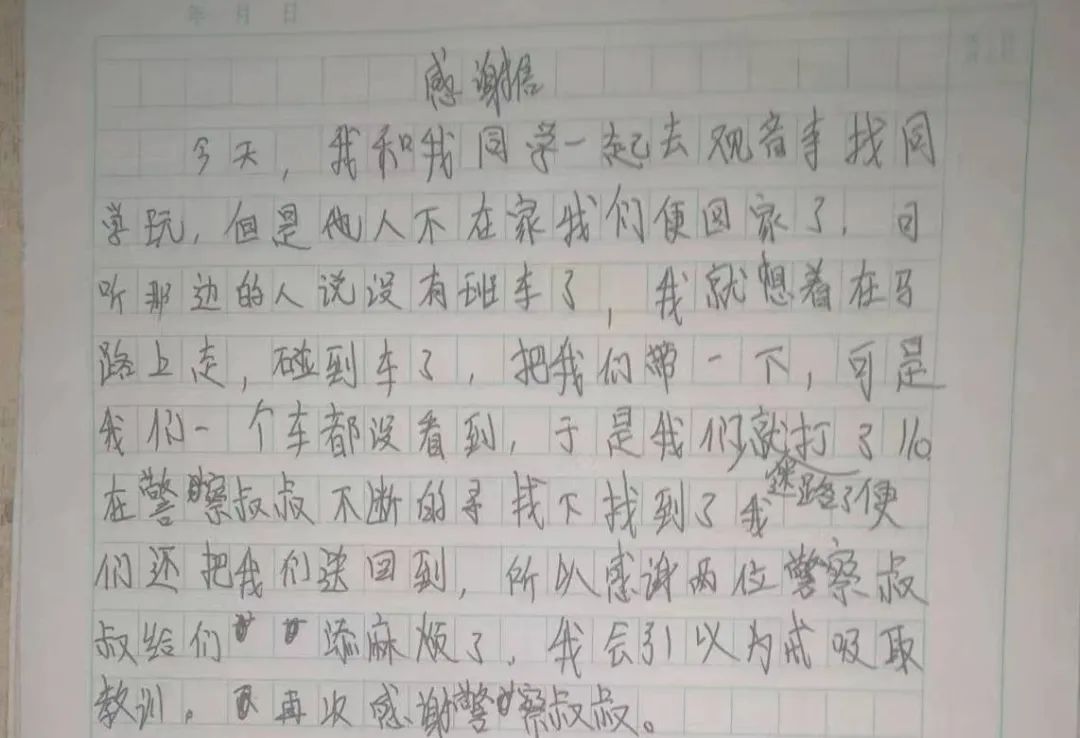 年 月 日
感谢信
今天，我和我同学一起去观音寺找同
学玩，但是他人不在家我们便回家了，可
听那边的人说没有班车了，我就想着在马
路上走，碰到车了，把我们带一下，可是
我们一个车都没看到，于是我们就打了110
迷路了便
在警察叔叔不断的寻找下找到了我
们还把我们送回到，所以感谢两位警察叔
叔给们添麻烦了，我会引以为戒吸取
教训。再次感谢警察叔叔。